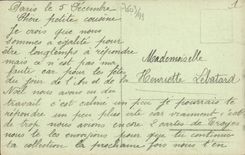 Paris le 5 Décembre
1
Chère petite cousine
Je crois que nous
sommes à égalité pour
être longtemps à répondre
mais ce n'est pas ma
faute car pour les fêtes
du jour de l'An et de la
Noël nous avons eu du
travail c'est calme un peu je pourrais te
répondre un peu plus vite car vraiment c'est
de trop nous avons encore 2 cartes de
nous te les envoyons pour que tu continues
la collection la prochaine fois nous t'en
Mademoiselle
Henriette Libatard